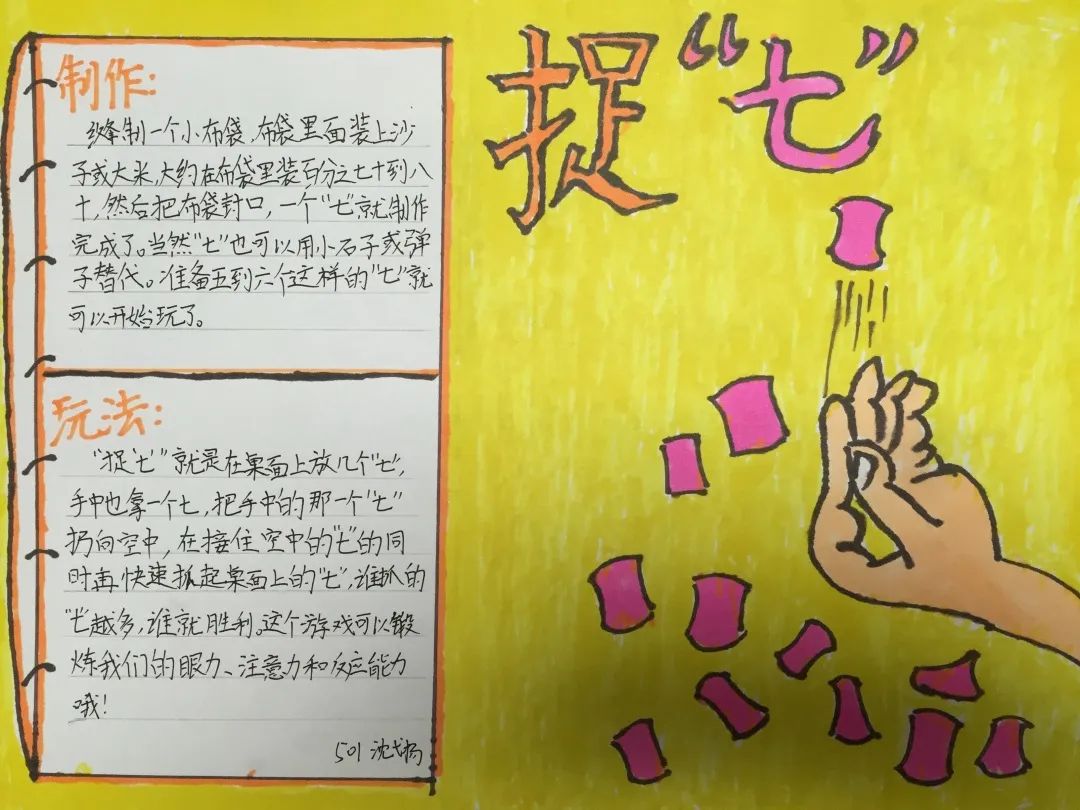 捉“七”
制作：
缝制一个小布袋，布袋里面装上沙
子或大米，大约在布袋里装百分之七十到八
十，然后把布袋封口，一个“七”就制作
完成了。当然“七”也可以用小石子或弹
子替代。准备五到六个这样的“七”就
可以开始玩了。
玩法：
“捉七”就是在桌面上放几个“七”，
手中也拿一个七，把手中的那一个“七”
扔向空中，在接住空中的“七”的同
时再快速抓起桌面上的“七”，谁抓的
“七”越多，谁就胜利。这个游戏可以锻
炼我们的眼力、注意力和反应能力
哦！
501 沈弋杨